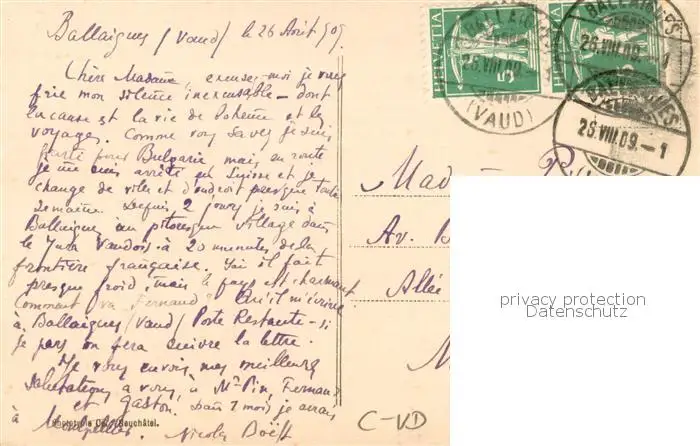 Ballaigues (Vaud) le 26 Août 909.
Chère Madame, excusez-moi je vous
prie mon silence inexcusable - dont
la cause est la vie de bohème et les
voyages. Comme vous savez je suis
parti pour Bulgarie mais en route
je me suis arrêté en Suisse et je
change de ville et d'endroit presque toute
semaine. Depuis 2 jours je suis à
Ballaigues un pitoresque village dans
le Jura Vaudois à 20 minutes de la
frontière française. Ici il fait
presque froid, mais le pays est charmant
Comment va Fernand? Qu'il m'écrive
à Ballaigues (Vaud) Poste Restante - si
je pars on fera suivre la lettre.
Je vous envoie mes meilleures
salutations à vous, à Mr Pin, Fernand
et Gaston. Dans 1 mois je serai
à Montpellier. Nicolas
Phototypie Co., Neuchâtel.
HELVETIA 5
HELVETIA
BALLAIGUES
26.VIII.09.
(VAUD)
BALLAIGUES
26.VIII.09.-1
BALLAIGUES
26.VIII.09.-1
Madame P
Av. B
Allée
M
C-VD
privacy protection
Datenschutz